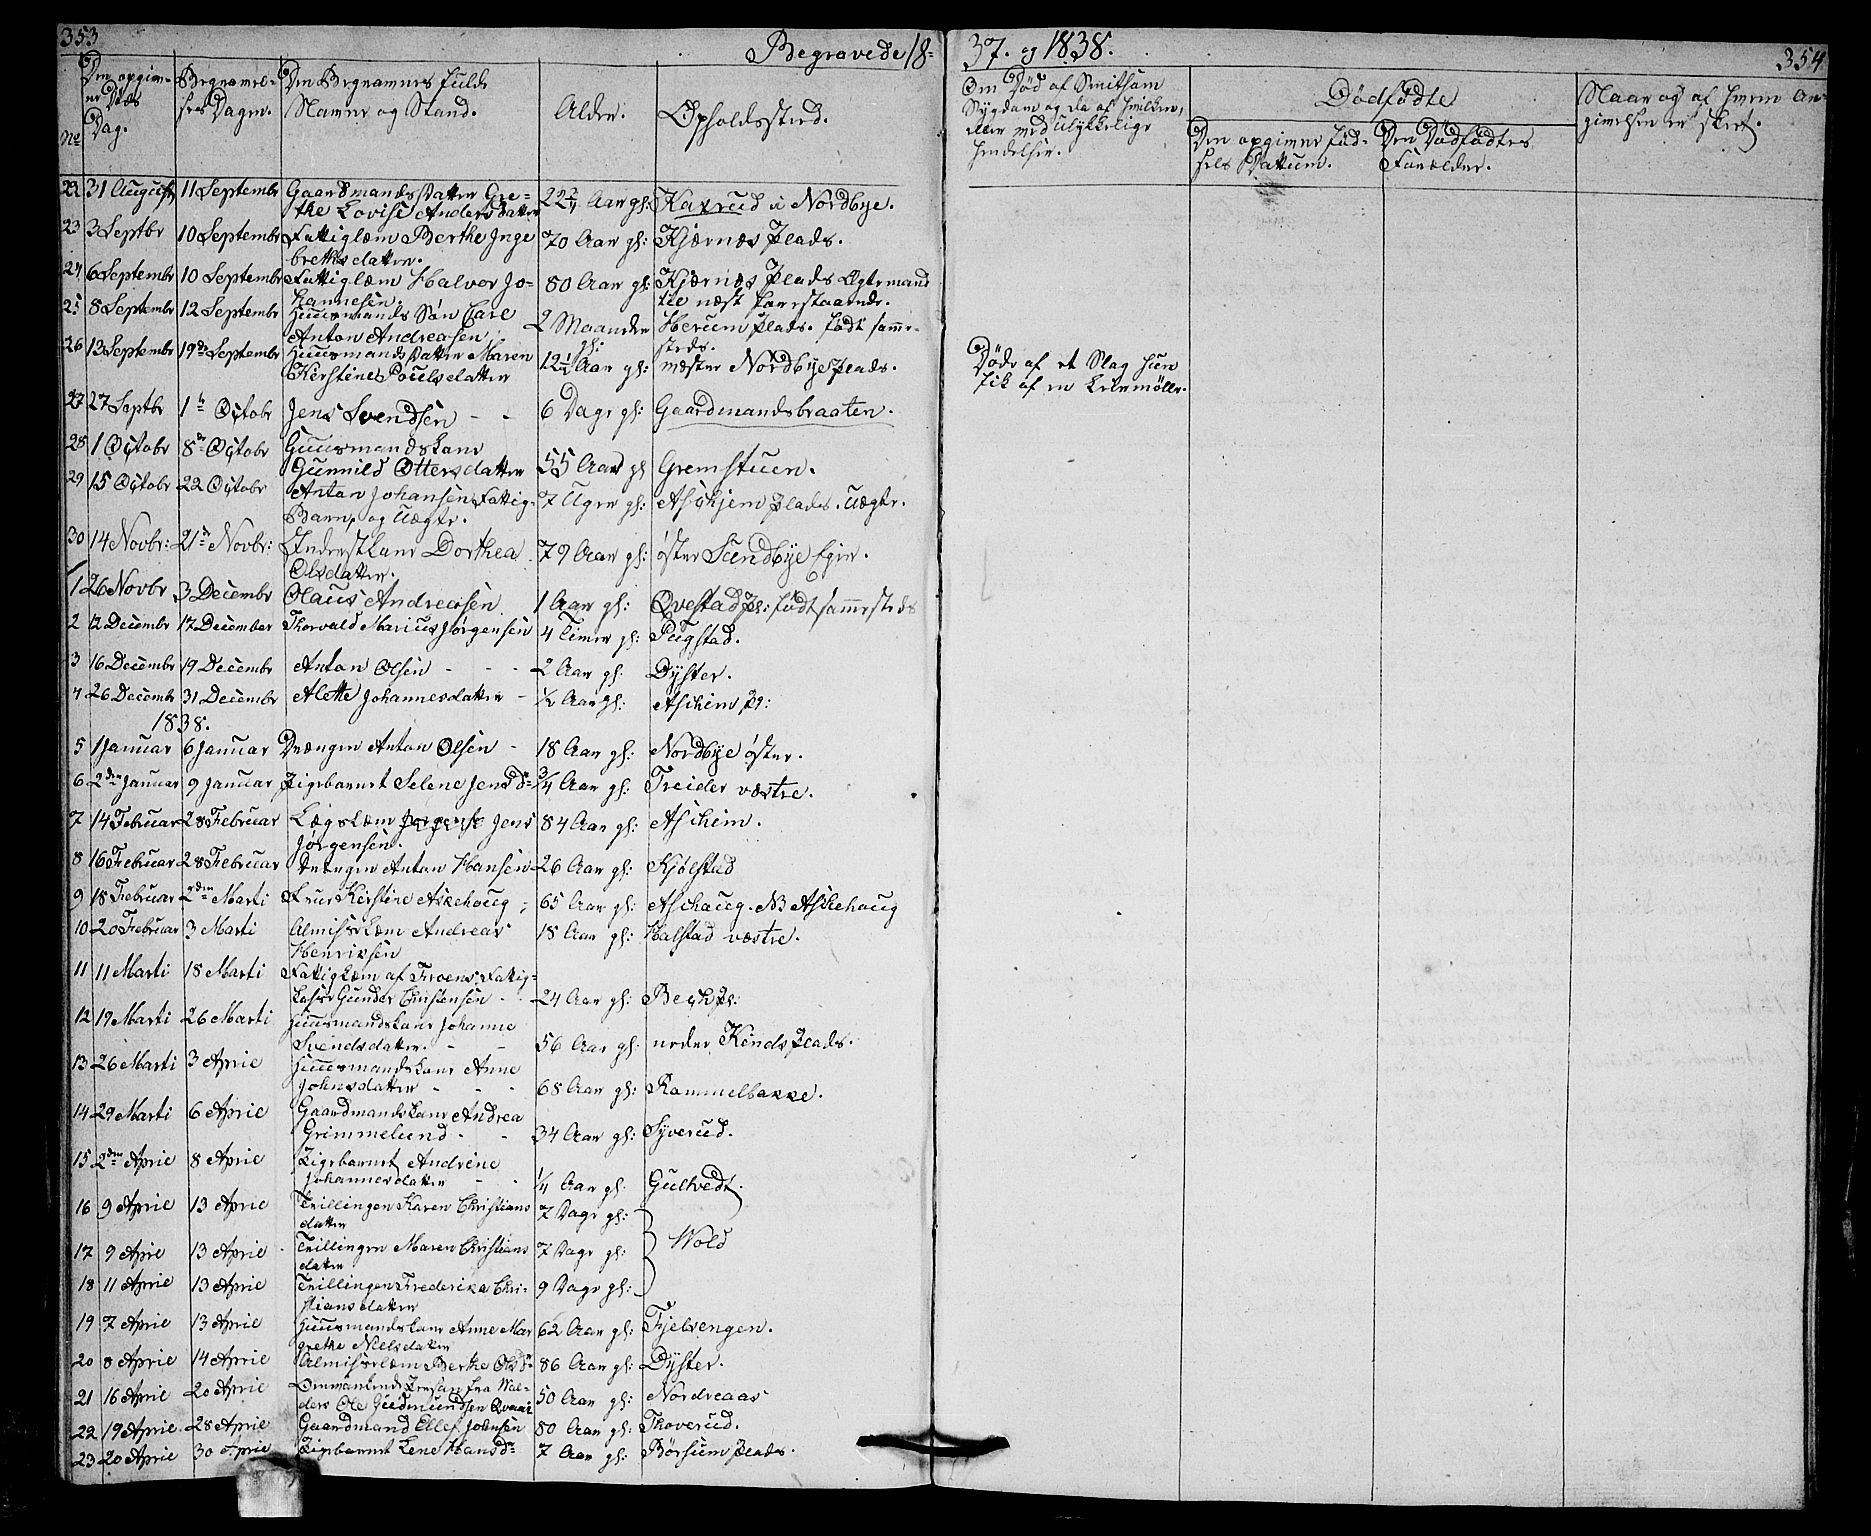 353
Begravede 18-
37. og 1838.
354
No
Den opgivne Døds Dag.
Begravelses Dagen.
Den Begravnes fulde Navne og Stand.
Alder.
Opholdssted.
Om Død af Smitsom
Sygdom og da af hvilken,
eller ved Ulykkelige
Hendelser.
Dødfødte
Den opgivne Fødsels Dattum.
Den Dødfødtes Forældre.
Naar og af hvem Angivelsen er skeet.
22 31 August 11 Septembr Gaardmands Datter Gre-
the Lovise Andersdatter 22 Aar gl: Kaxrud i Nordbye.
23 3 Septbr 10 Septembr Fattiglæm Berthe Inge
brethsdatter. 70 Aar gl: Kjærnæs Plads.
24 6 Septembr 10 Septembr Fattiglæm Halvor Jo-
hannesen. 80 Aar gl: Kjærnæs Plads Ægtemand
til næst forestaaende.
25 8 Septembr 12 Septembr Huusmands Søn Carl
Anton Andreasen 2 Maaneder gl: Herum Plads. født samme-
steds.
26 13 Septembr 19de Septembr Huusmands Datter Maren
Kirstine Poulsdatter 12 1/2 Aar gl: væster Nordbye Plads.
Døde af et Slag hun
fik af en
27 27 Septbr 1te Octobr Jens Svendsen - - 6 Dage gl: Gaardmandsbraaten.
28 1 Octobr 8de Octobr Huusmandskone
Gunnild Ottersdatter 55 Aar gl Gremstuen.
29 15 Octobr 22 Octobr Anton Johansen Fattig-
Barn, og Uægte. 7 Uger gl: Aschjem Plads. Uægte.
30 14 Novbr: 21de Novbr: Inderstkone Dorthea
Olsdatter. 79 Aar gl: øster Sundbye Eger.
1 26 Novbr 3 Decembr Olaus Andreasen 1 Aar gl: Qvestad Pl: født sammesteds
2 12 Decembr 17 December Thorvald Marius Jørgensen 4 Timer gl: Pugstad.
3 16 Decembr 19 Decembr Anton Olsen - - - 2 Aar gl: Dyster.
4 26 Decembr 31 Decembr Alette Johannesdatter - 1/2 Aar gl: Aschim Pl:
1838.
5 1 Januar 6 Januar Drængen Anton Olsen - 18 Aar gl: Nordbye øster.
6 2den Januar 9 Januar Pigebarnet Selene Jensd:- 3/4 Aar gl: Treider væstre.
7 14 Februar 28 Februar Lægslæm Jens
Jørgensen. 84 Aar gl: Aschim.
8 16 Februar 28 Februar Drængen Anton Hansen 26 Aar gl: Kjølstad
9 18 Februar 2den Marti Frue Kirstine Askehoug; 65 Aar gl: Aschaug. NB Aschehoug
10 20 Februar 3 Marti Almisselæm Andreas
Henriksen 18 Aar gl: Halstad væstre.
11 11 Marti 18 Marti Fattiglæm af Froens Fattig-
kasse Gunder Christensen - - 24 Aar gl: Beck Pl:
12 19 Marti 26 Marti Huusmandskone Johanne
Svendsdatter. - - 56 Aar gl. neder Kinds Plads.
13 26 Marti 3 April Huusmandskone Anne
Johnsdatter - - - 68 Aar gl: Rammelbakke.
14 29 Marti 6 April Gaardmandskone Andrea
Grimmelund - - 34 Aar gl: Syverud.
15 2den April 8 April Pigebarnet Andrine
Johannesdatter - - 1/4 Aar gl. Gultvedt.
16 9 April 13 April Trillingen Karen Christians
datter 7 Dage gl:
17 9 April 13 April Trillingen Maren Christians
datter 7 Dage gl: Wold
18 11 April 13 April Trillingen Frederika Chri-
stiansdatter 9 Dage gl:
19 7 April 13 April Huusmandskone Anne Mar
grethe Nielsdatter 62 Aar gl: Fjelsengen.
20 8 April 14 April Almisselæm Berthe Olsd: 86 Aar gl: Dyster.
21 16 April 20 April Omvankende Person fra Wal-
ders Ole Gudmundsen Qvaal 50 Aar gl: Nordreaas
22 19 April 28 April Gaardmand Ellef Johnsen 80 Aar gl: Thoverud.
23 20 April 30 April Pigebarnet Lene Hansd: 7 Aar gl: Børsum Plads.